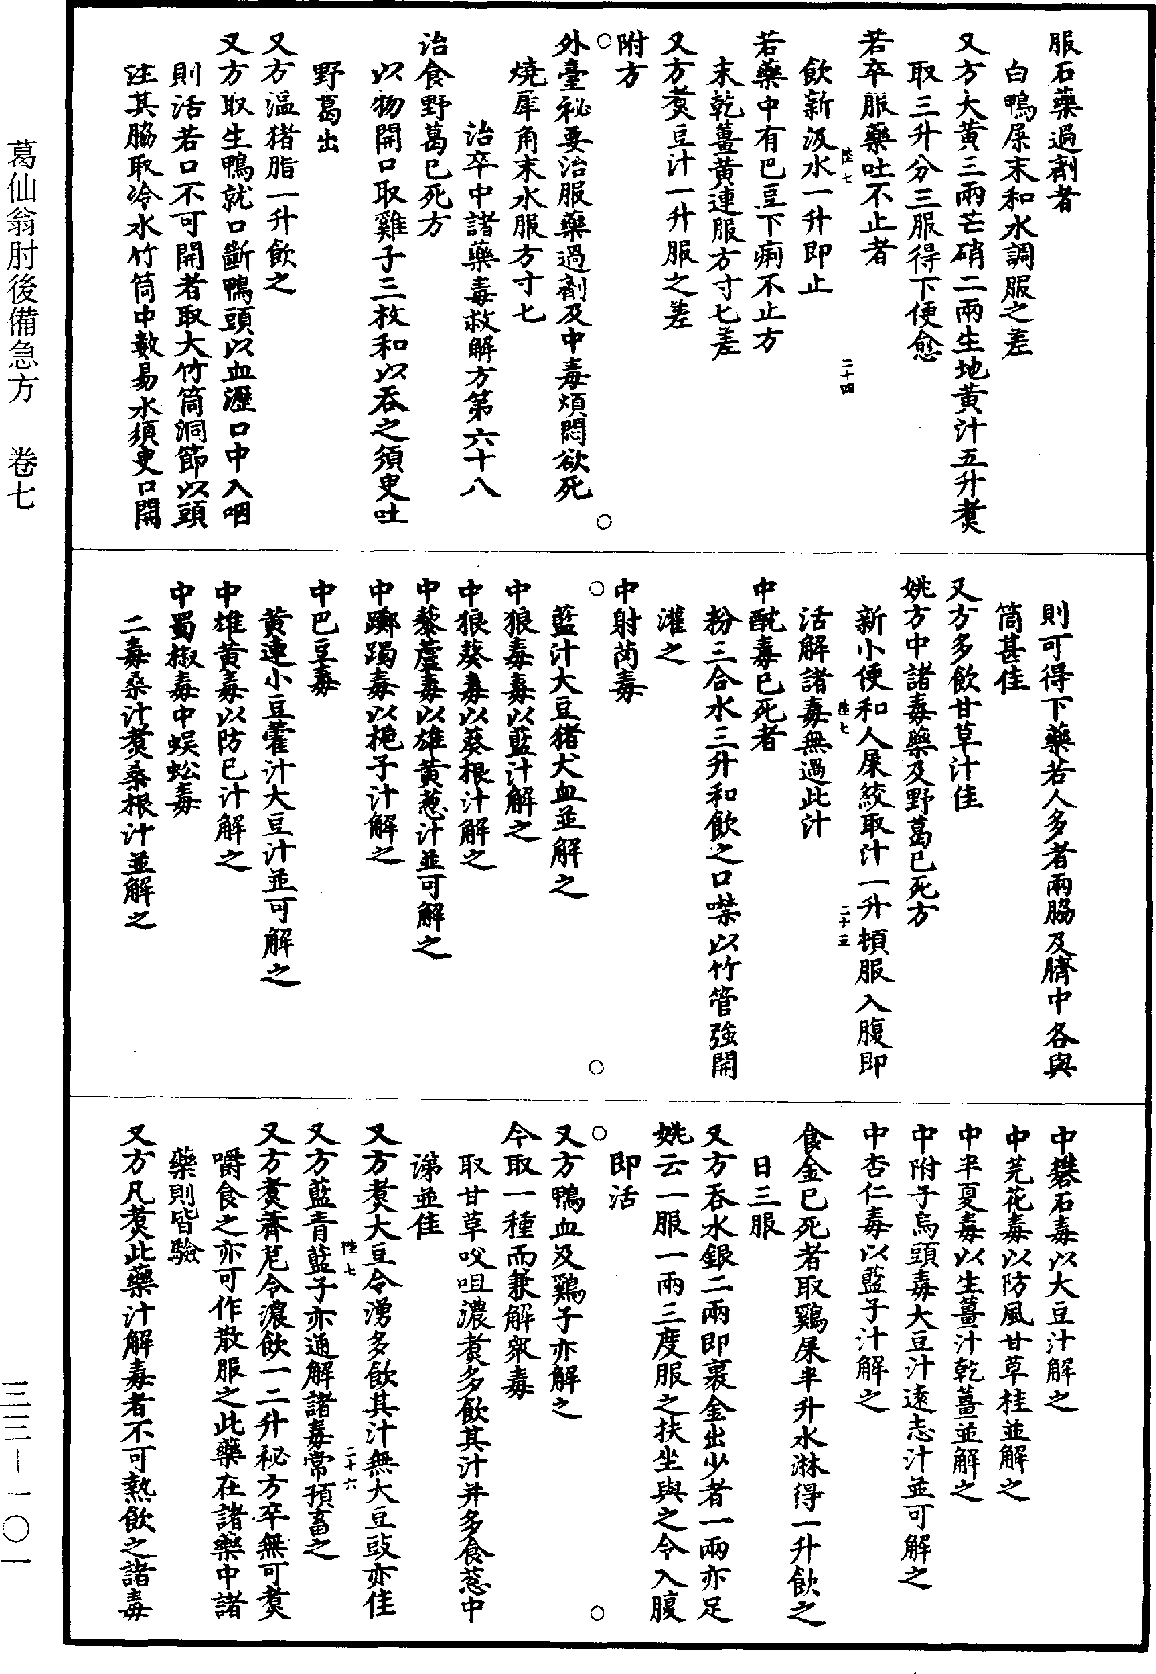 服石藥過劑者
白鴨屎末和水調服之差
又方大黃三兩芒硝二兩生地黃汁五升煑
取三升分三服得下便愈
若卒服藥吐不止者
飲新汲水一升即止
陸七
二十四
若藥中有巴豆下痢不止方
末乾薑黃連服方寸匕差
又方煑豆汁一升服之差
附方
外臺秘要治服藥過劑及中毒煩悶欲死
燒犀角末水服方寸匕
治卒中諸藥毒救解方第六十八
治食野葛已死方
以物開口取雞子三枚和以吞之須臾吐
野葛出
又方溫猪脂一升飲之
又方取生鴨就口斷鴨頭以血瀝口中入咽
則活若口不可開者取大竹筒洞節以頭
注其脇取冷水竹筒中數易水須臾口開
則可得下藥若人多者兩脇及臍中各與
筒甚佳
又方多飲甘草汁佳
姚方中諸毒藥及野葛已死方
新小便和人屎絞取汁一升頓服入腹即
陸七
二十五
活解諸毒無過此汁
中酖毒已死者
粉三合水三升和飲之口噤以竹管強開
灌之
中射茵毒
藍汁大豆猪犬血並解之
中狼毒毒以藍汁解之
中狼葵毒以葵根汁解之
中藜蘆毒以雄黃葱汁並可解之
中躑躅毒以梔子汁解之
中巴豆毒
黃連小豆藿汁大豆汁並可解之
中雄黃毒以防已汁解之
中蜀椒毒中蜈蚣毒
二毒桑汁煑桑根汁並解之
中礬石毒以大豆汁解之
中芫花毒以防風甘草桂並解之
中半夏毒以生薑汁乾薑並解之
中附子烏頭毒大豆汁遠志汁並可解之
中杏仁毒以藍子汁解之
食金已死者取鷄屎半升水淋得一升飲之
日三服
又方吞水銀二兩即裹金出少者一兩亦足
姚云一服一兩三度服之扶坐與之令入腹
即活
又方鴨血及鷄子亦解之
今取一種而兼解衆毒
取甘草㕮咀濃煑多飲其汁并多食葱中
涕並佳
又方煑大豆令湧多飲其汁無大豆豉亦佳
陸七
二十六
又方藍青藍子亦通解諸毒常預畜之
又方煑薺苨令濃飲一二升秘方卒無可煑
嚼食之亦可作散服之此藥在諸藥中諸
藥則皆驗
又方凡煑此藥汁解毒者不可熱飲之諸毒
葛仙翁肘後備急方 卷七
三三—一〇一